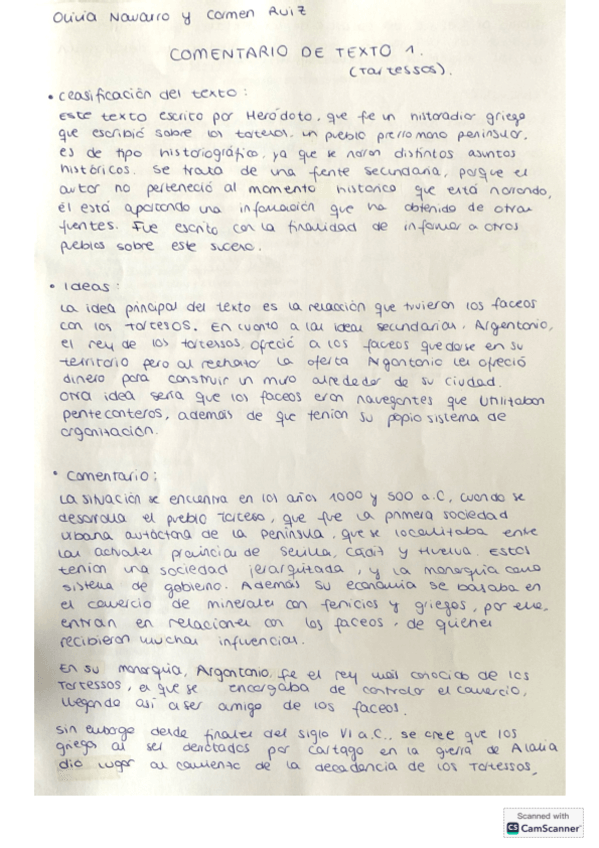 Olivia Navarro y Carmen Ruiz
COMENTARIO DE TEXTO 1.
(Tartessos).
• Clasificación del texto:
Este texto escrito por Heródoto, que fue un historiador griego
que escribió sobre los tartesos, un pueblo prerromano peninsular,
es de tipo historiográfico, ya que se narran distintos asuntos
históricos. Se trata de una fuente secundaria, porque el
autor no perteneció al momento histórico que está narrando,
él está aportando una información que ha obtenido de otras
fuentes. Fue escrito con la finalidad de informar a otros
pueblos sobre este suceso.
• Ideas:
La idea principal del texto es la relacción que tuvieron los faceos
con los tartesos. En cuanto a las ideas secundarias, Argantonio,
el rey de los tartessos, ofreció a los faceos quedarse en su
territorio pero al rechazar la oferta Argantonio les ofreció
dinero para construir un muro alrededor de su ciudad.
Otra idea sería que los faceos eran navegantes que utilizaban
penteconteros, además de que tenían su propio sistema de
organización.
• Comentario:
La situación se encuentra en los años 1000 y 500 a.C, cuando se
desarrolla el pueblo Tarteso, que fue la primera sociedad
urbana autóctona de la península, que se localizaba entre
las actuales provincias de Sevilla, Cádiz y Huelva. Estos
tenían una sociedad jerarquizada, y la monarquía como
sistema de gobierno. Además su economía se basaba en
el comercio de minerales con fenicios y griegos, por eso,
entran en relaciones con los faceos, de quienes
recibieron muchas influencias.
En su monarquía, Argantonio, fue el rey más conocido de los
Tartessos, el que se encargaba de controlar el comercio,
llegando así a ser amigo de los faceos.
Sin embargo desde finales del siglo VI a.C., se cree que los
griegos al ser derrotados por Cartago en la guerra de Alalia
dio lugar al comienzo de la decadencia de los Tartessos,
Scanned with
CS CamScanner